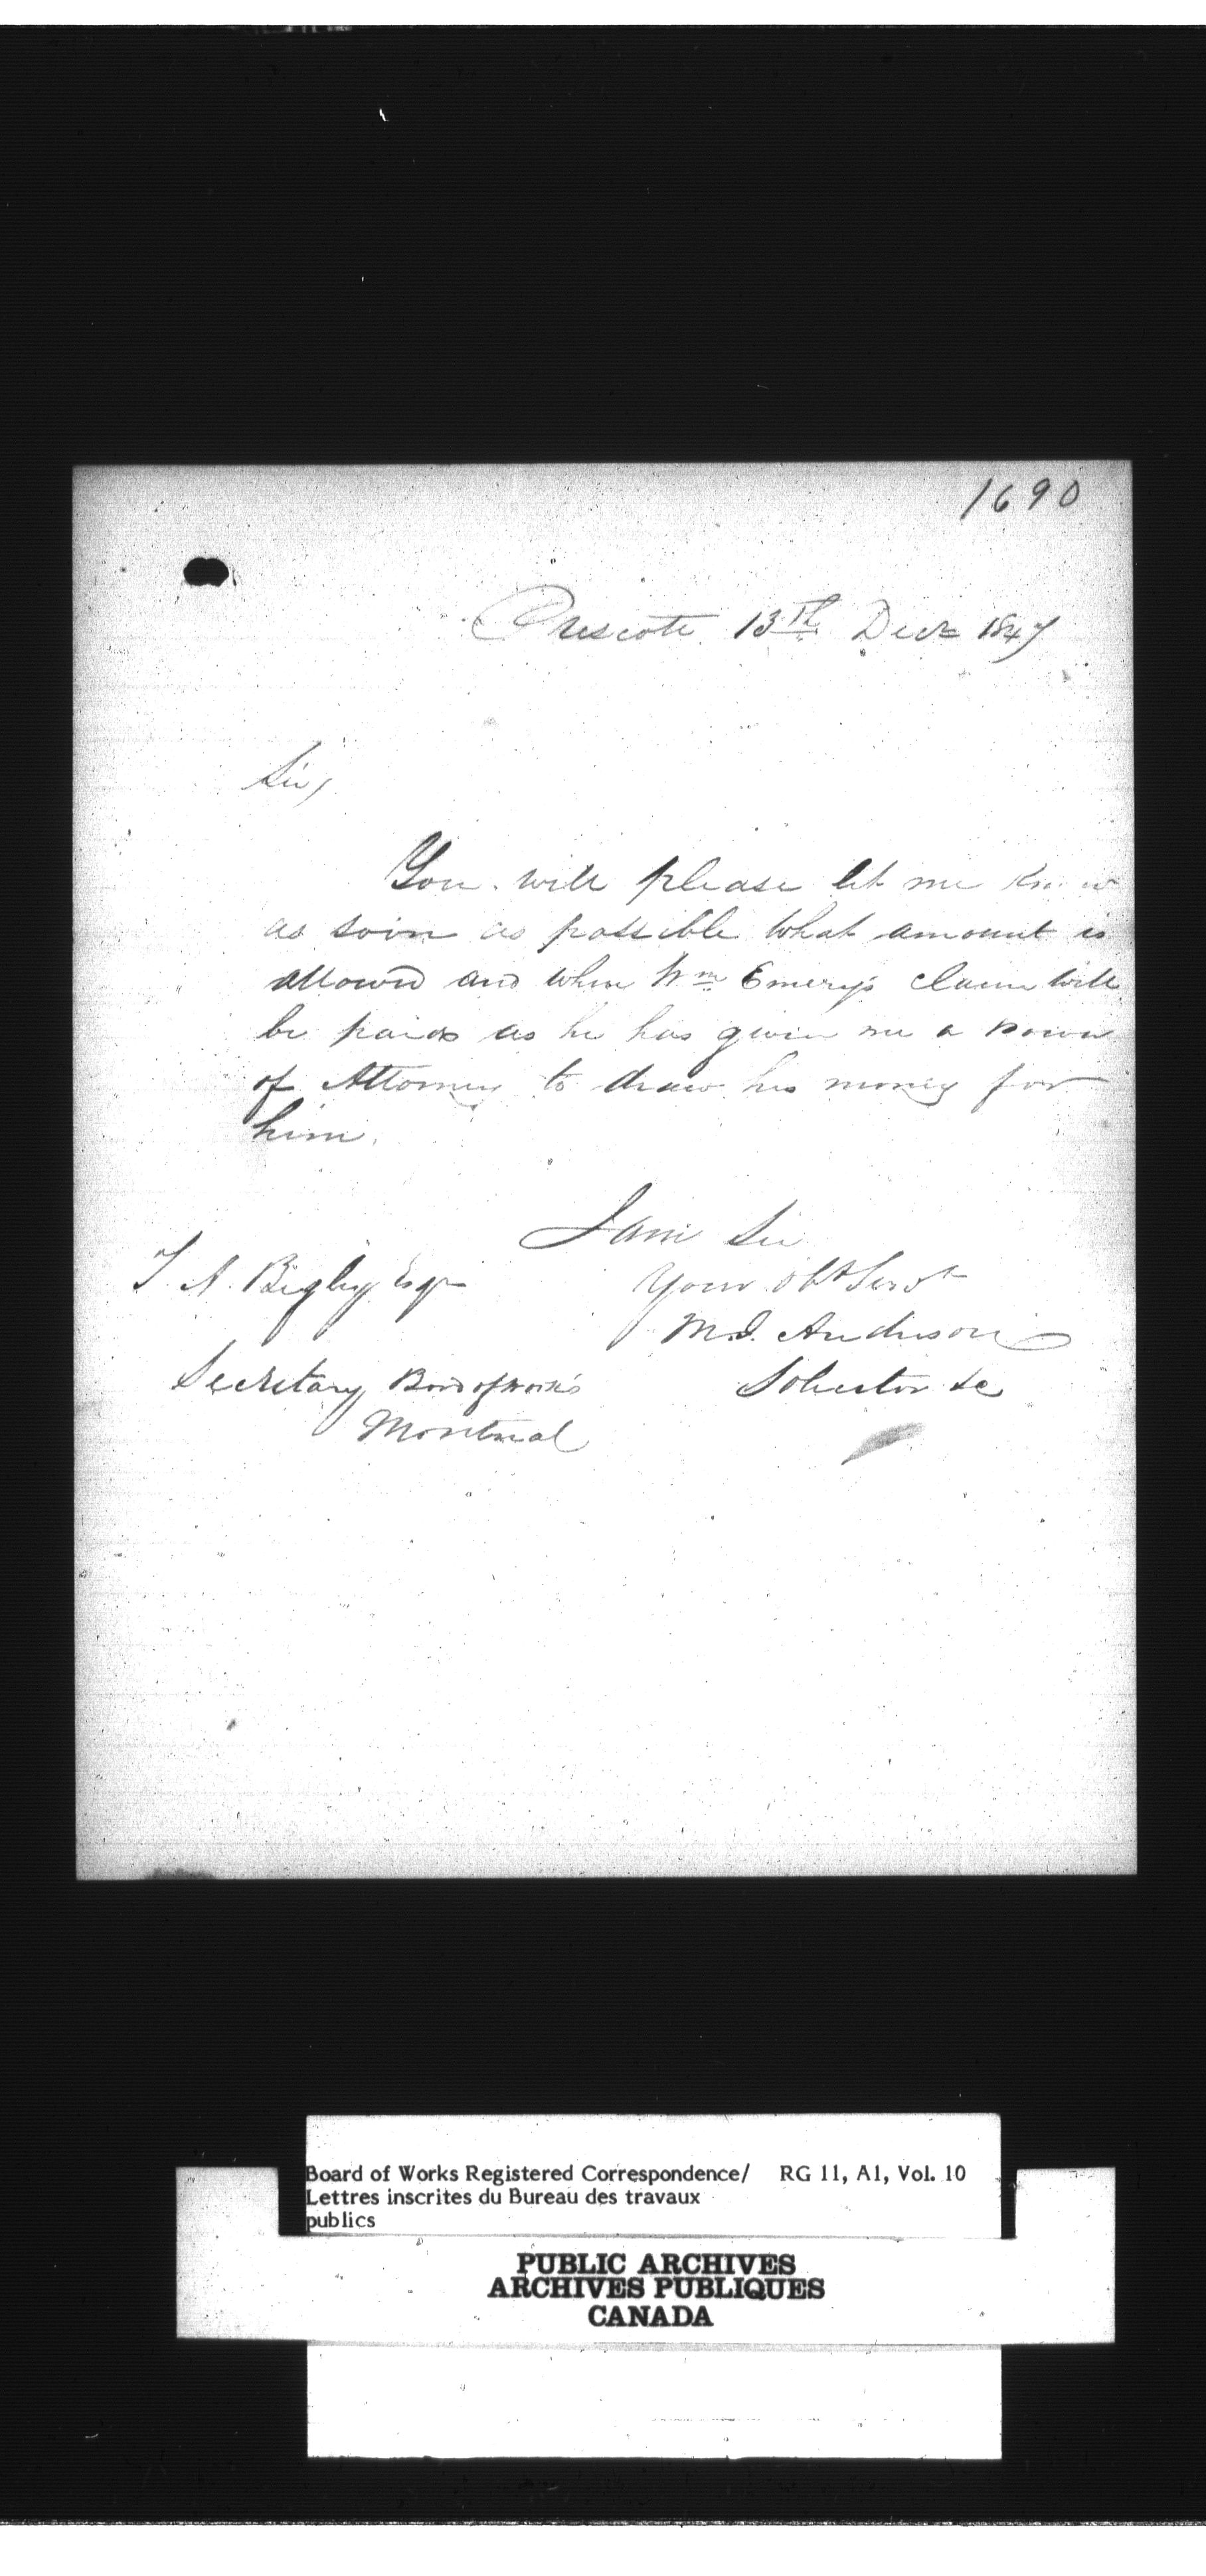 1690
Prescott 13th Decr 1847
Sir,
You will please let me know
as soon as possible what amount is
allowed and when Wm Emery's claim will
be paid as he has given me a Power
of Attorney to draw his money for
him.
I am Sir
T. A. Begly Esqr
Your Obt Servt
M.J. Anderson
Secretary Bord of Works
Solicitor &c
Montreal
Board of Works Registered Correspondence/ RG 11, A1, Vol. 10
Lettres inscrites du Bureau des travaux
publics
PUBLIC ARCHIVES
ARCHIVES PUBLIQUES
CANADA